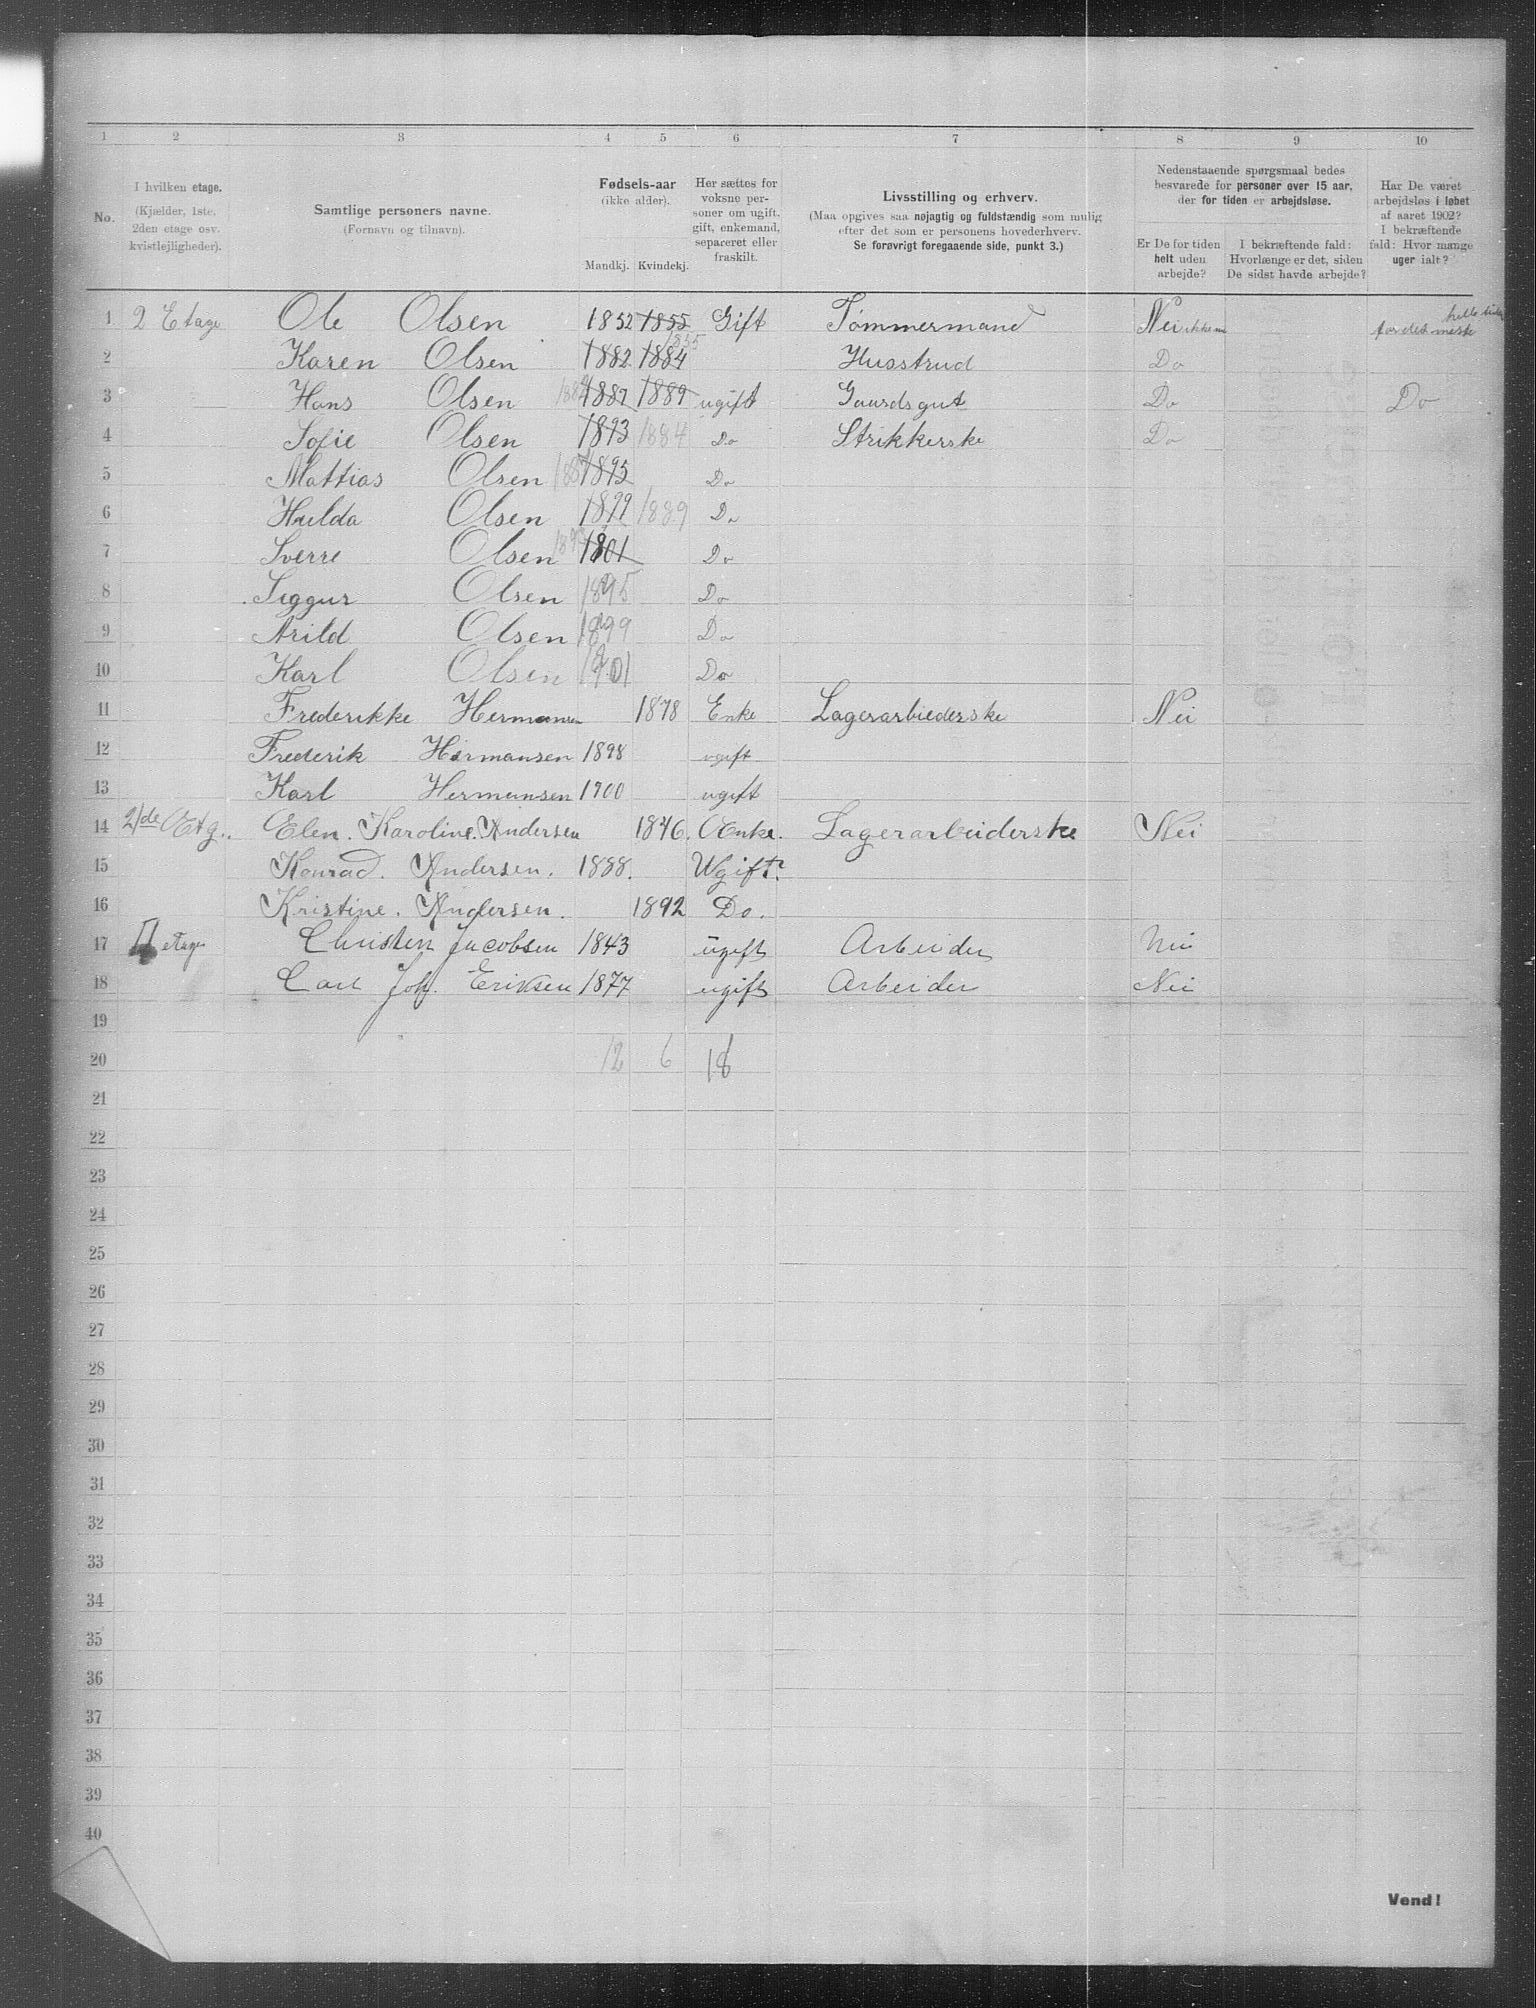 1 2 3 4 5 6 7 8 9 10
No.
I hvilken etage.
(Kjælder, 1ste,
2den etage osv.
kvistlejligheder).
Samtlige personers navne.
(Fornavn og tilnavn).
Fødsels-aar
(ikke alder).
Mandkj. Kvindekj.
Her sættes for
voksne per-
soner om ugift,
gift, enkemand,
separeret eller
fraskilt.
Livsstilling og erhverv.
(Maa opgives saa nøjagtig og fuldstændig som mulig
efter det som er personens hovederhverv.
Se forøvrigt foregaaende side, punkt 3.)
Nedenstaaende spørgsmaal bedes
besvarede for personer over 15 aar,
der for tiden er arbejdsløse.
Er De for tiden
helt uden
arbejde?
I bekræftende fald:
Hvorlænge er det, siden
De sidst havde arbejde?
Har De været
arbejdsløs i løbet
af aaret 1902?
I bekræftende
fald: Hvor mange
uger ialt?
1 2 Etage Ole Olsen 1852 1855 Gift Tømmermand Nei for det meste
2 Karen Olsen 1882 1884 1855 Husstrud Do
3 Hans Olsen 1887 1889 ugift Gaurdsgut Do Do
4 Sofie Olsen 1893 1884 Do Strikkerske Do
5 Mattias Olsen 1887 1895 Do
6 Hulda Olsen 1899 1889 Do
7 Sverre Olsen 1893 1801 Do
8 Siggur Olsen 1895 Do
9 Arild Olsen 1899 Do
10 Karl Olsen 1901 Do
11 Frederikke Hermansen 1878 Enke Lagerarbiederske Nei
12 Frederik Hermansen 1898 ugift
13 Karl Hermansen 1900 ugift
14 2/de Etg.. Elen. Karoline. Andersen 1846. Enke. Lagerarbeiderske Nei
15 Konrad. Andersen. 1888. Ugift.
16 Kristine. Andersen. 1892 Do.
17 4 etage Christen Jacobsen 1843 ugift Arbeider Nei
18 Carl Joh. Eriksen 1877 ugift Arbeider Nei
19
20 12 6 18
21
22
23
24
25
26
27
28
29
30
31
32
33
34
35
36
37
38
39
40
Vend!